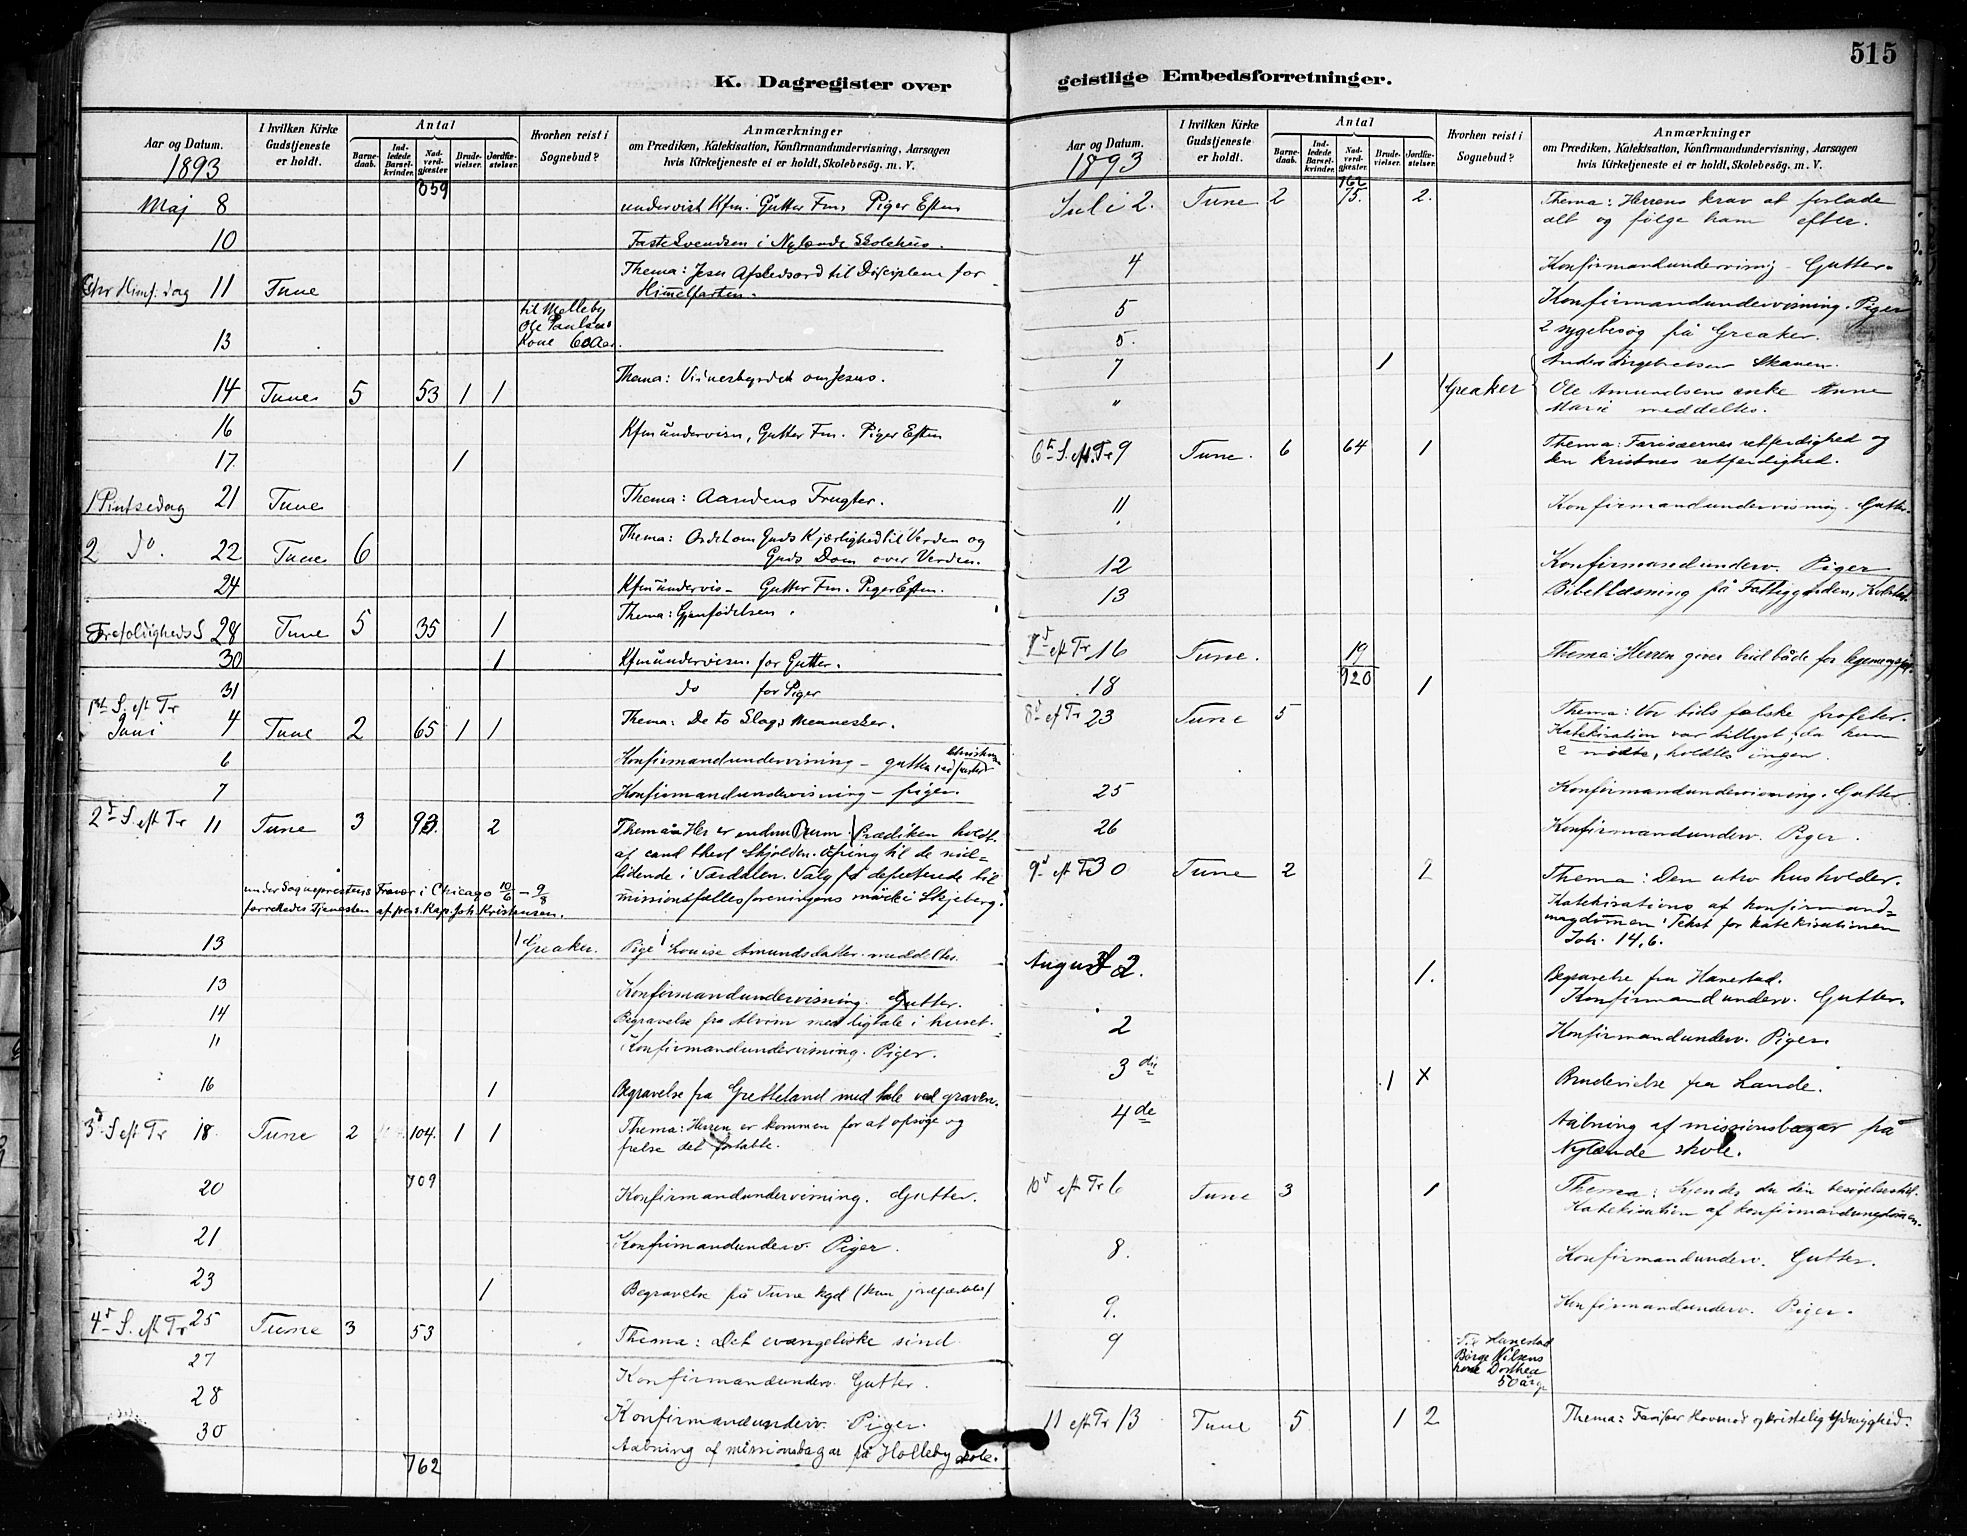 K. Dagregister over
Aar og Datum.
1893
I hvilken Kirke Gudstjeneste er holdt.
Antal
Barnedaab.
Indledede Barselkvinder.
Nadverdgjester
Brudevielser.
Jordfæstelser.
Hvorhen reist i Sognebud?
Anmærkninger
om Prædiken, Katekisation, Konfirmandundervisning, Aarsagen
hvis Kirketjeneste ei er holdt, Skolebesög. m. V.
359
Maj 8 undervist Kfm. Gutter Fm. Piger Eftm
10 i Nylænde Skolehus.
Chr Himf. dag 11 Tune Thema: Jesu Afskedsord til Disciplene før
Himmelfarten.
13 til Melleby
Ole Paulsens
Kone 60 Aar.
14 Tune 5 53 1 1 Thema: Vidnesbyrdet om Jesus.
16 Kfmundervisn, Gutter Fm. Piger Eftm
17. 1
1 Pintsedag 21 Tune Thema: Aandens Frugter.
2 do. 22 Tune 6 Thema: Ordet om Guds Kjærlighed til Verden og
Guds Dom over Verden.
24 Kfmundervis - Gutter Fm. Piger Eftm.
Trefoldigheds S 28 Tune 5 35 1 Thema: Gjenfødelsen.
30 1 Kfmundervisn. for Gutter.
31 do for Piger
1ste S. eft Tr
Juni 4 Tune 2 65 1 1 Thema: De to Slags Mennesker.
6 Konfirmandundervisning - gutter
7 Konfirmandundervisning - piger.
2d S. eft Tr 11 Tune 3 93. 2 Thema: Her er endnu Rum. Prædiken holdt
af cand theol Skjolden. Ofring til de nød=
lidende i Værdalen. Valg på deputerede til
missionsfællesforeningens møde i Skjeberg.
under Sogneprestens Fravær i Chicago 10/6 - 9/8
forrettedes Tjenesten af pers. Kap. Joh. Kristensen.
13 Greaker. Pige Louise Amundsdatter meddeltes.
13 Konfirmandundervisning. Gutter.
14 Begravelse fra Alvim med ligtale i huset.
" Konfirmandundervisning. Piger.
16 1 Begravelse fra Gretteland med tale ved graven.
3d S eft Tr 18 Tune 2 104. 1 1 Thema: Herren er kommen for at opsøge og
frelse det fortabte.
709
20 Konfirmandundervisning. Gutter.
21 Konfirmandunderv. Piger.
23 1 Begravelse på Tune kgd (kun jordfæstelse)
4d S. eft Tr 25 Tune 3 53 Thema: Det evangeliske sind
27 Konfirmandunderv. Gutter.
28 Konfirmandunderv. Piger.
30 Aabning af missionsbazar på Holleby skole.
762
515
geistlige Embedsforretninger.
Aar og Datum.
1893
I hvilken Kirke Gudstjeneste er holdt.
Antal
Barnedaab.
Indledede Barselkvinder.
Nadverdgjester
Brudevielser.
Jordfæstelser.
Hvorhen reist i Sognebud?
Anmærkninger
om Prædiken, Katekisation, Konfirmandundervisning, Aarsagen
hvis Kirketjeneste ei er holdt, Skolebesög. m. V.
762
Juli 2. Tune 2 75. 2. Thema: Herrens krav at forlade
alt og følge ham efter.
4 Konfirmandundervisning - Gutter.
5 Konfirmandundervisning. Piger
5. 2 sygebesøg på Greaker.
7 1 Anders Ingebretsen Skaven.
" Greaker Ole Amundsens enke Anne
Marie meddeltes.
6te S. eft. Tr 9 Tune. 6 64 1 Thema: Farisæernes retfærdighed og
den kristnes retfærdighed.
11 Konfirmandundervisning. Gutter.
12 Konfirmandunderv. Piger
13 Bibellæsning på Fattiggården,
7d eft Tr 16 Tune. 19 Thema: Herren giver brød både for
920
18 1
8d eft Tr 23 Tune 5 Thema: Vor tids falske profeter.
Katekisation var tillyst, da kun
2 mødte, holdtes ingen.
25 Konfirmandundervisning. Gutter.
26 Konfirmandunderv. Piger.
9d eft Tr 30 Tune 2 2 Thema: Den utro husholder.
Katekisation af konfirmand=
ungdommen. Tekst for katekisationen
Joh. 14,6.
August 2. 1. Begravelse fra Hanestad.
Konfirmandunderv. Gutter.
2 Konfirmandunderv. Piger.
3die 1 X Brudevielse fra Lande.
4de Aabning af missionsbazar på
Nylænde skole.
10d eft Tr 6 Tune 3 1 Thema: Kjender du din besøgelsestid.
Katekisation af konfirmandungdommen.
8. Konfirmandunderv. Gutter.
9. Konfirmandunderv. Piger.
9 Til Hanestad
Børge Nilsens
kone Dorthea
50 årg
11 eft Tr 13 Tune 5 1 2 Thema: Farisæer Hovmod og kristelig Ydmyghed.